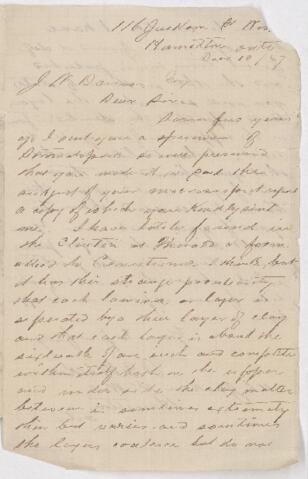 116 Jackson St
Hamilton Ont
Dec 10 /
J W Dawson Esq
Dear Sir
Some few years
ago I sent you a specimen of
Stromatopora
that you made it in part the
subject of your microscopist report
a copy of which you kindly sent
me. I have lately found in
the Clinton at Thorold a form
allied to Caunopora I think but
it has this strange peculiarity
that each lamina or layer is
separated by a thin layer of clay
and that each layer is about the
sixteenth of an inch and complete
within itself both on the upper
and under side the clay matter
between is sometimes extremely
thin but varies and sometimes
the layers coalesce but do not